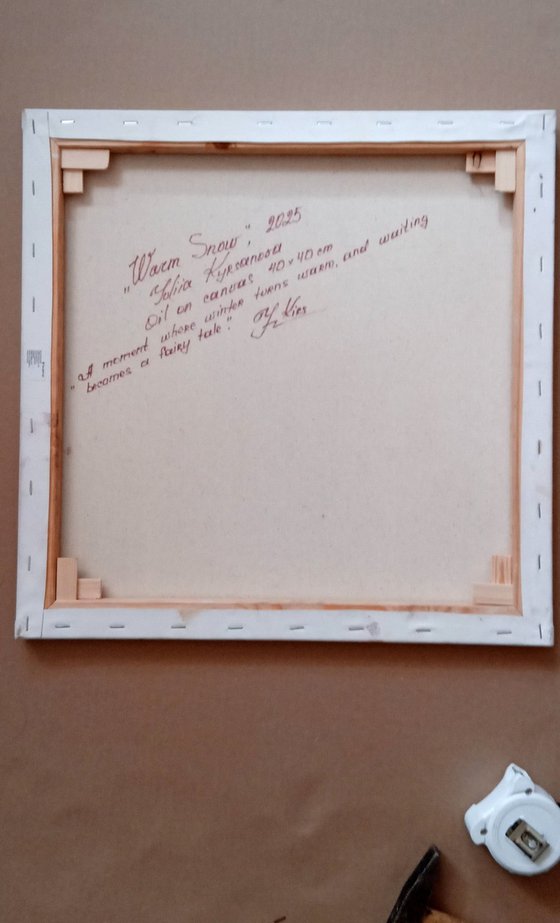 "Warm Snow", 2025
Yuliia Kyrsanova
Oil on canvas 40×40cm
"A moment where winter turns warm, and waiting
becomes a fairy tale".
Y. Kirs